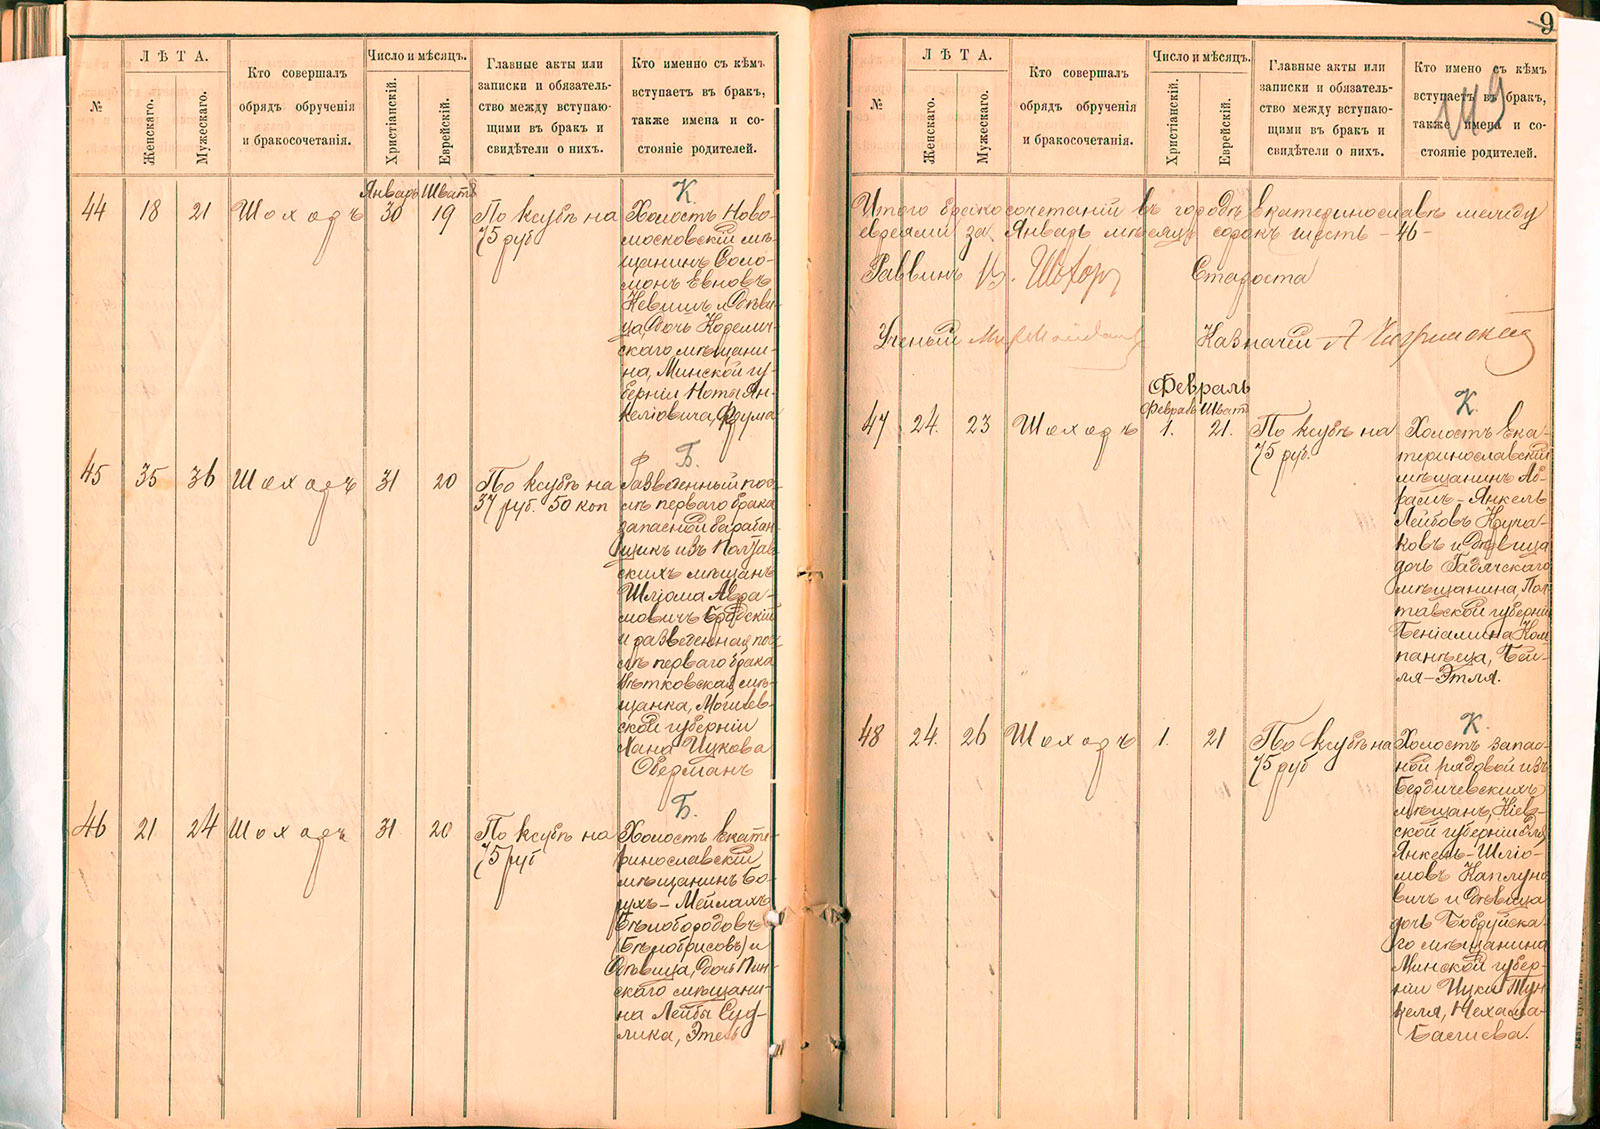 №
ЛѢТА.
Женскаго.
Мужескаго.
Кто совершалъ
обрядъ обрученія
и бракосочетанія.
Число и мѣсяцъ.
Христіанскій.
Еврейскій.
Главные акты или
записки и обязатель-
ство между вступаю-
щими въ бракъ и
свидѣтели о нихъ.
Кто именно съ кѣмъ
вступаетъ въ бракъ,
также имена и со-
стояніе родителей.
Январь Шватъ
44 18 21 Шоходъ 30 19
По ксубѣ на
75 руб
К.
Холостъ Ново-
московскій мѣ-
щанинъ Соло-
монъ Евновъ
Невшит и дѣви-
ца, дочь
скаго мѣщани-
на, Минской гу-
берніи Ноты Ян-
келіовича, Фрума
45 35 36 Шоходъ 31 20
По ксубѣ на
37 руб. 50 коп
Б.
Разведенный пос-
лѣ перваго брака
запасной барабан-
щикъ изъ Полтав-
скихъ мѣщанъ
Шліома Авра-
мовичъ Бродскій
и разведенная пос-
лѣ перваго брака
Вѣтковская мѣ-
щанка, Могилев-
ской губерніи
Хана Ицкова
Оберманъ
46 21 24 Шоходъ 31 20
По ксубѣ на
75 руб
Б.
Холостъ Екате-
ринославскій
мѣщанинъ Бо-
рухъ-Меймахъ
Бѣлобородовъ
(Бѣлобрисовъ) и
дѣвица, дочь Пин-
скаго мѣщани-
на Лейбы Суд-
лика, Этель
9
149
№
ЛѢТА.
Женскаго.
Мужескаго.
Кто совершалъ
обрядъ обрученія
и бракосочетанія.
Число и мѣсяцъ.
Христіанскій.
Еврейскій.
Главные акты или
записки и обязатель-
ство между вступаю-
щими въ бракъ и
свидѣтели о нихъ.
Кто имено съ кѣмъ
вступаетъ въ бракъ,
также имена и со-
стояніе родителей.
Итого бракосочетаній въ городѣ Екатеринославѣ между
евреями за Январь мѣсяцъ сорокъ шесть - 46 -
Раввинъ Шохоръ Староста
Ученый Казначей
Февраль
Февраль Шватъ
47 24. 23 Шоходъ 1. 21.
По ксубѣ на
75 руб.
К.
Холостъ Ека-
теринославскій
мѣщанинъ Аб-
рамъ-Янкель
Лейбовъ Куча-
ковъ и дѣвица
дочь Гадячскаго
мѣщанина, Пол-
тавской губерніи
Беніамина Ком-
панѣеца, Бей-
ля-Этля.
48 24. 26 Шоходъ 1. 21
По ксубѣ на
75 руб
К.
Холостъ запас-
ной рядовой изъ
Бердичевскихъ
мѣщанъ, Кіев-
ской губерніи
Янкель-Шліо-
мовъ Каплуно-
вичъ и дѣвица
дочь Бобруйска-
го мѣщанина
Минской губер-
ніи Ицки Мун-
келя, Нехама-
Басшева.